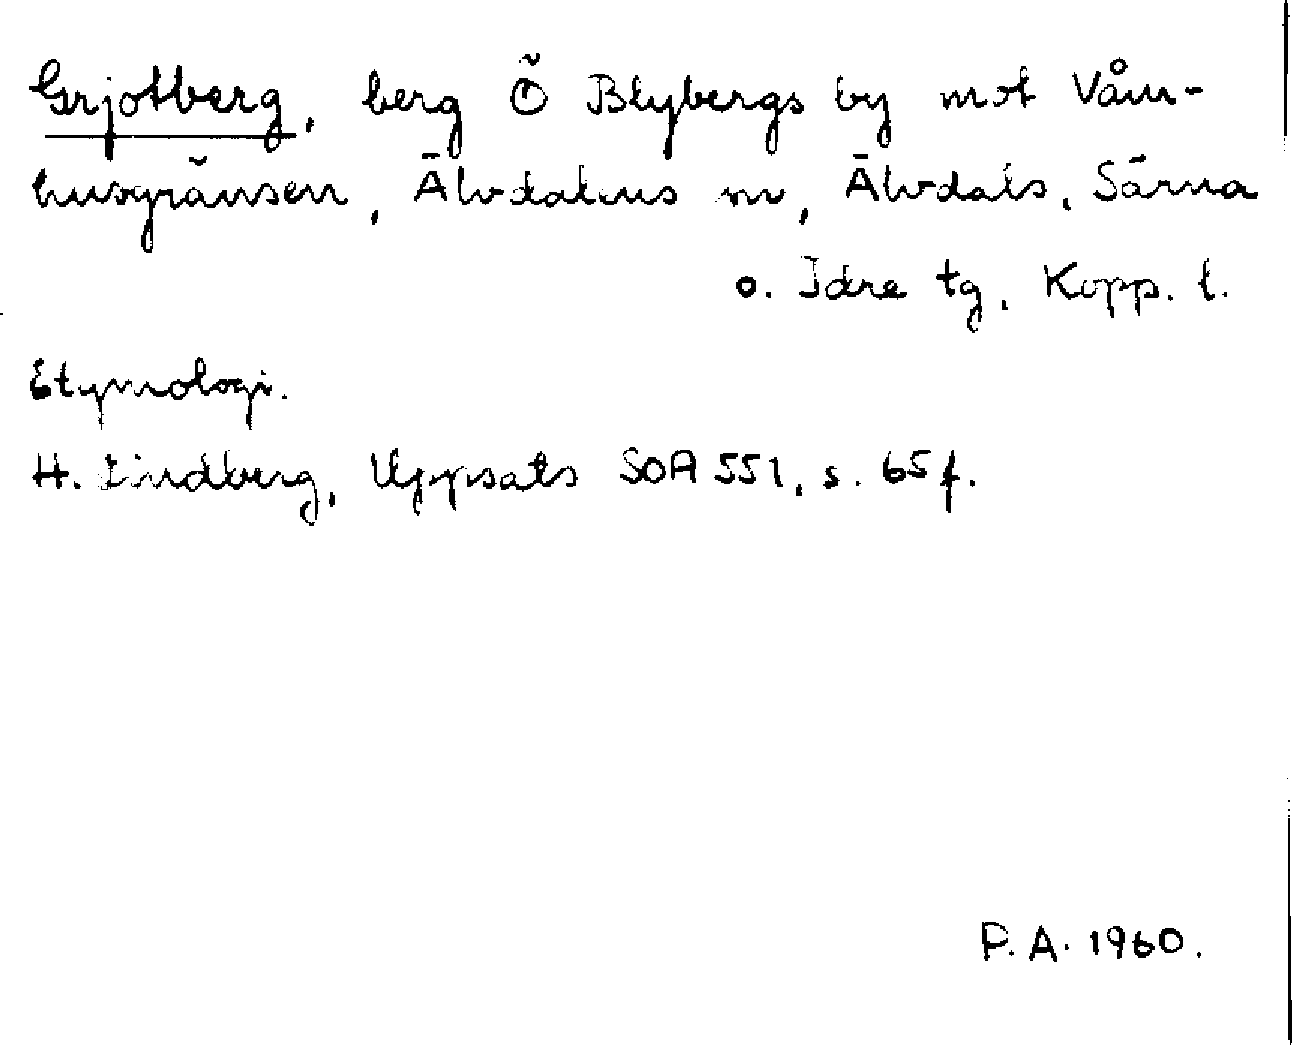 Grjotberg, berg Ö Blybergs by mot Våm-
husgränsen, Älvdalens sn, Älvdals, Särna
o. Idre tg, Kopp. l.
Etymologi.
H. Lindberg, Uppsats SOA 551, s. 65 f.
P. A. 1960.